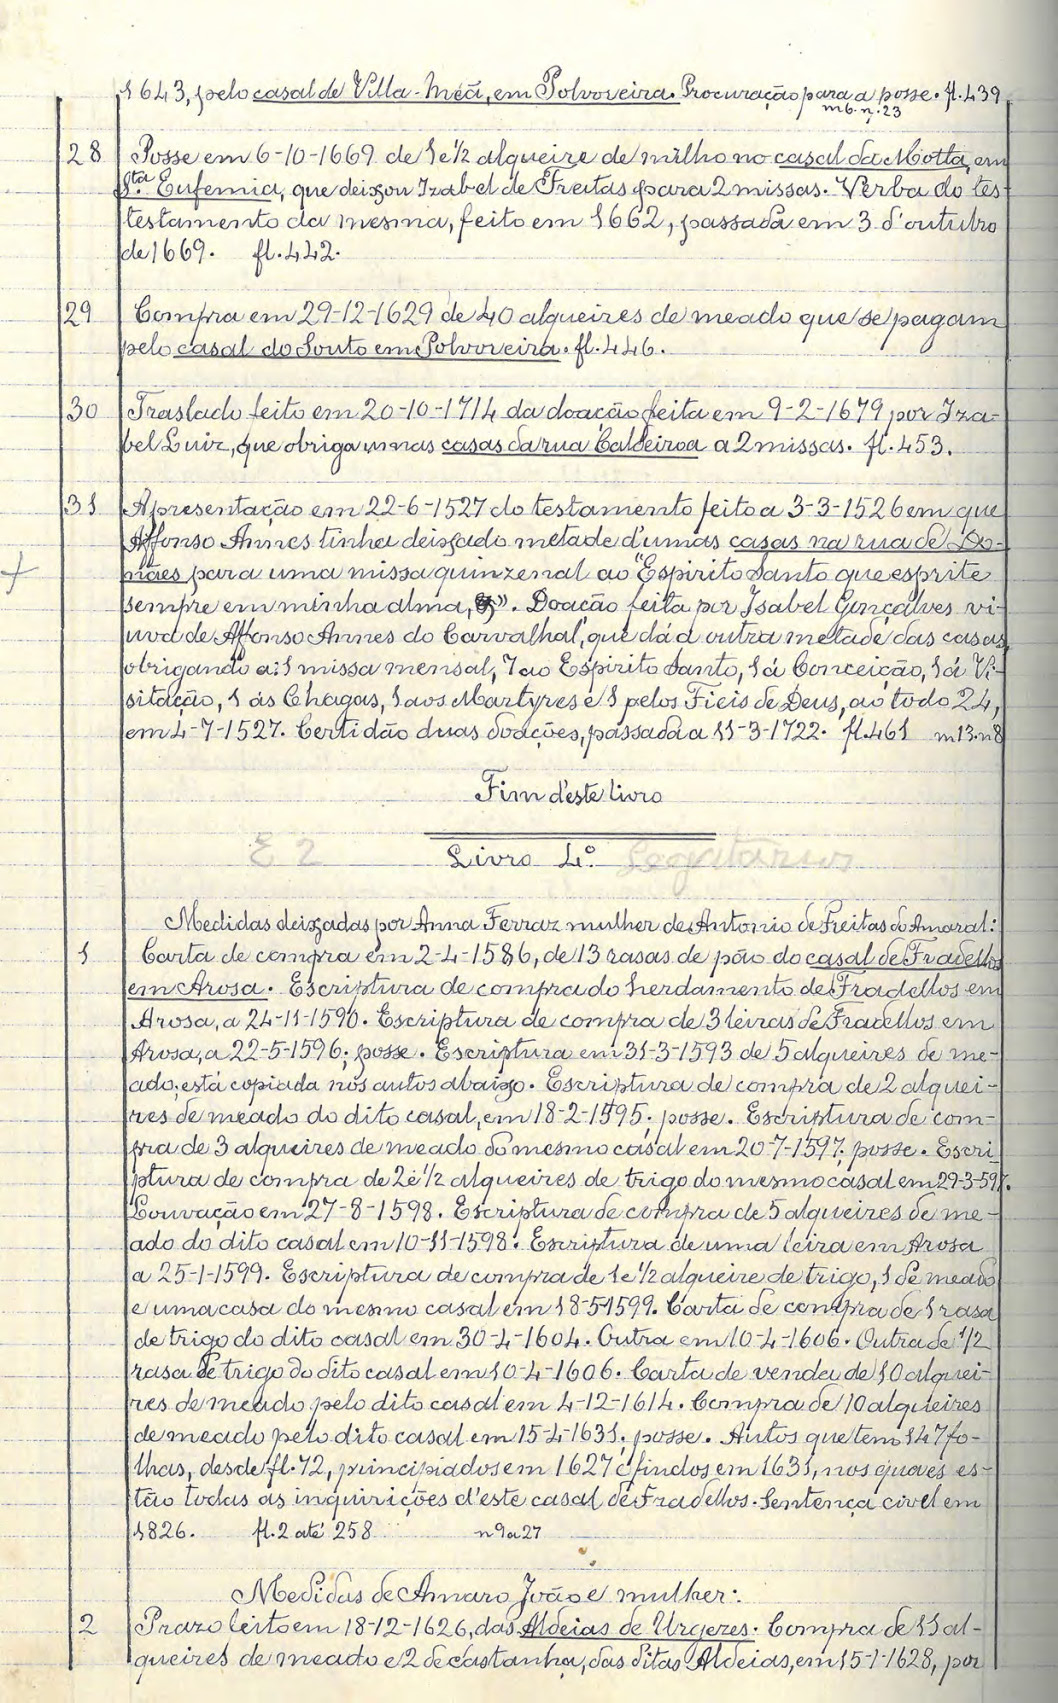 1643, pelo casal de Villa-Meã, em Polvoreira. Procuração para a posse. fl. 439
m 6. n.º 23
28 Posse em 6-10-1669 de 1 e ½ alqueire de milho no casal da Motta, em
Sta. Eufemia, que deixou Izabel de Freitas para 2 missas. Verba do tes-
testamento da mesma, feito em 1662, passada em 3 d'outubro
de 1669. fl. 442.
29 Compra em 29-12-1629 de 40 alqueires de meado que se pagam
pelo casal do Souto em Polvoreira. fl. 446.
30 Traslado feito em 20-10-1714 da doação feita em 9-2-1679 por Iza-
bel Luiz, que obriga umas casas da rua Caldeiroa a 2 missas. fl. 453.
31 Apresentação em 22-6-1527 do testamento feito a 3-3-1526 em que
Affonso Annes tinha deixado metade d'umas casas na rua de Do-
nães para uma missa quinzenal ao "Espirito Santo que esprite
sempre em minha alma, ". Doação feita por Isabel Gonçalves vi-
uva de Affonso Annes do Carvalhal, que dá a outra metade das casas
obrigando a: 1 missa mensal, 7 ao Espirito Santo, 1 á Conceição, 1 á Vi-
sitação, 1 ás Chagas, 1 aos Martyres e 1 pelos Fieis de Deus, ao todo 24,
em 4-7-1527. Certidão duas doações, passada a 11-3-1722. fl. 461 m 13. n 8
Fim d'este livro
E 2 Livro 4.º Legatarios
Medidas deixadas por Anna Ferraz mulher de Antonio de Freitas do Amaral:
1 Carta de compra em 2-4-1586, de 13 rasas de pão do casal de Fradellos
em Arosa. Escriptura de compra do herdamento de Fradellos em
Arosa, a 24-11-1590. Escriptura de compra de 3 leiras de Fradellos em
Arosa, a 22-5-1596; posse. Escriptura em 31-3-1593 de 5 alqueires de me-
ado; está copiada nos autos abaixo. Escriptura de compra de 2 alquei-
res de meado do dito casal, em 18-2-1595. posse. Escriptura de com-
pra de 3 alqueires de meado do mesmo casal em 20-7-1597; posse. Escri
ptura de compra de 2 e ½ alqueires de trigo do mesmo casal em 29-3-597.
Louvação em 27-8-1598. Escriptura de compra de 5 alqueires de me-
ado do dito casal em 10-11-1598. Escriptura de uma leira em Arosa
a 25-1-1599. Escriptura de compra de 1 e ½ alqueire de trigo, 1 de meado
e uma casa do mesmo casal em 18-5-1599. Carta de compra de 1 rasa
de trigo do dito casal em 30-4-1604. Outra em 10-4-1606. Outra de 1/2
rasa de trigo do dito casal em 10-4-1606. Carta de venda de 10 alquei-
res de meado pelo dito casal em 4-12-1614. Compra de 10 alqueires
de meado pelo dito casal em 15-4-1631; posse. Autos que tem 147 fo-
lhas, desde fl. 72, principiados em 1627 e findos em 1631, nos quaes es-
tão todas as inquirições d'este casal de Fradellos. Sentença civel em
1826. fl. 2 até 258 n 9 a 27
Medidas de Amaro João e mulher:
2 Prazo feito em 18-12-1626, das Aldeias de Urgezes. Compra de 11 al-
queires de meado e 2 de castanha, das ditas Aldeias, em 15-1-1628, por